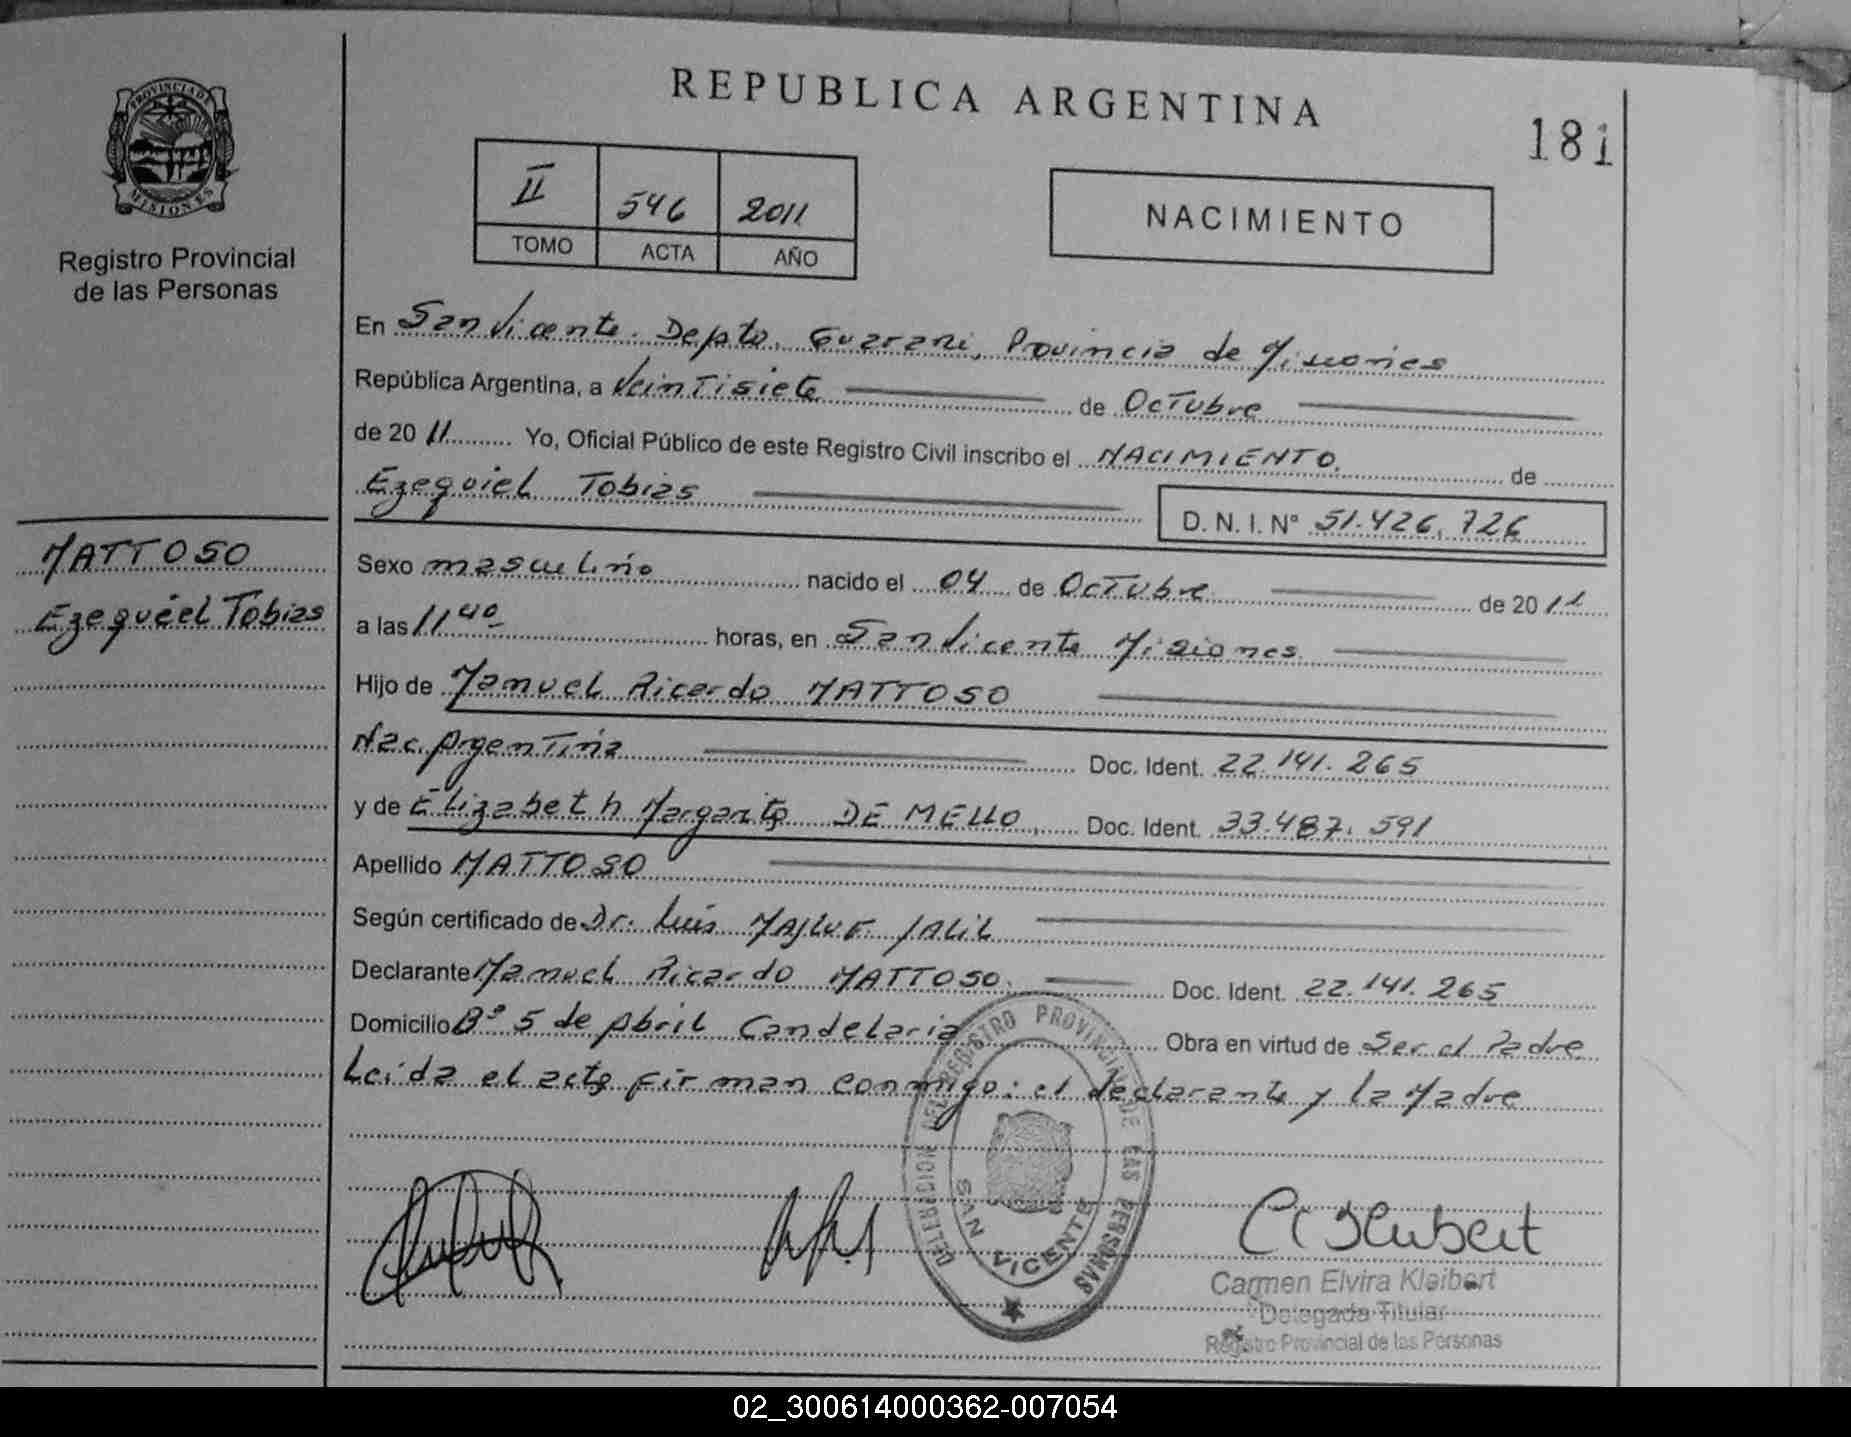 REPUBLICA ARGENTINA
181
PROVINCIA DE
MISIONES
Registro Provincial
de las Personas
II 546 2011
TOMO ACTA AÑO
NACIMIENTO
En San Vicente. Depto. Guarani, Provincia de Misiones
República Argentina, a Veintisiete de Octubre
de 20 11 Yo, Oficial Público de este Registro Civil inscribo el NACIMIENTO. de
Ezequiel Tobias
D. N. I. N° 51.426.726
MATTOSO
Ezequiel Tobias
Sexo masculino nacido el 04 de Octubre de 20 11
a las 11 40 horas, en San Vicente Misiones
Hijo de Manuel Ricardo MATTOSO
Nac. Argentina Doc. Ident. 22.141.265
y de Elizabeth Margarita DE MELLO, Doc. Ident. 33.487.591
Apellido MATTOSO
Según certificado de Dr. Luis JALIL
Declarante Manuel Ricardo MATTOSO. Doc. Ident. 22.141.265
Domicilio B° 5 de Abril Candelaria Obra en virtud de Ser el Padre
Leida el acta firman conmigo: el declarante y la Madre
DELEGACION DEL REGISTRO PROVINCIAL DE LAS PERSONAS
SAN VICENTE
Carmen Elvira Kleibert
Delegada Titular
Registro Provincial de las Personas
02_300614000362-007054